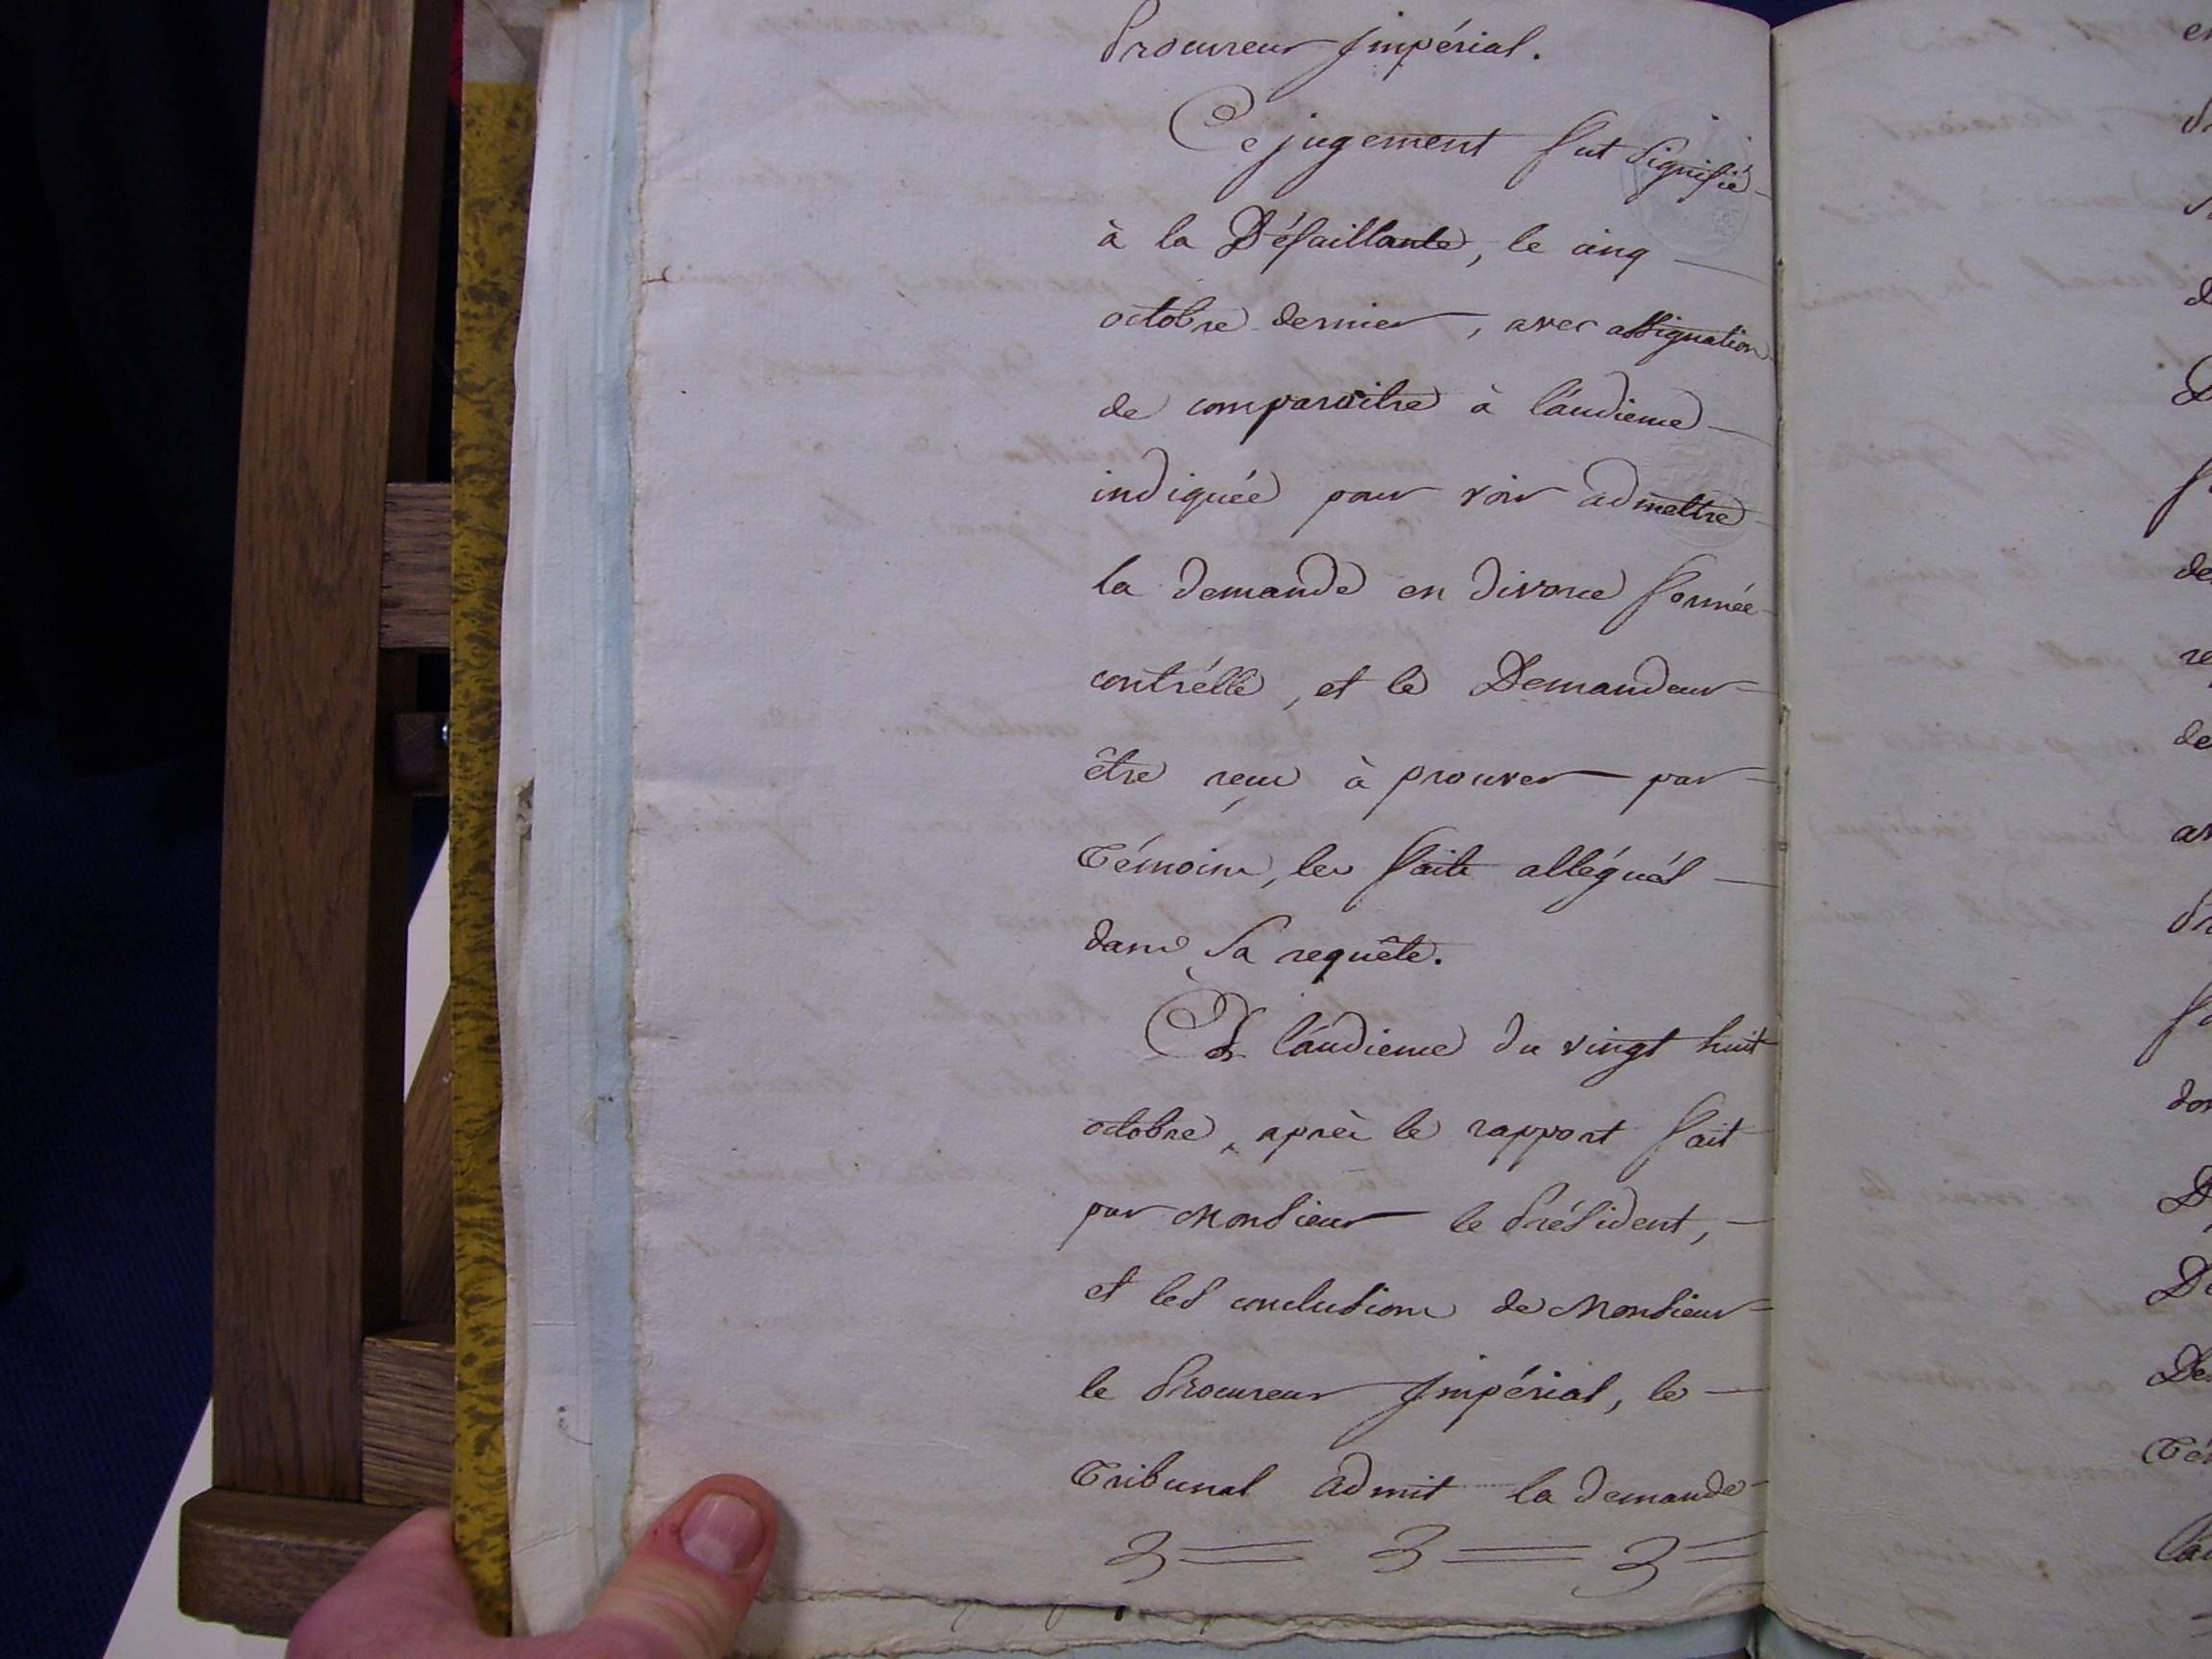 Procureur Impérial.
Ce jugement fut signifié
à la Défaillante, le cinq
octobre dernier, avec assignation
de comparoitre à l'audience
indiquée pour voir admettre
la demande en divorce formée
contr'elle, et le Demandeur
être reçu à prouver par
témoins, les faits allégués
dans sa requête.
A l'audience du vingt huit
octobre, après le rapport fait
par Monsieur le Président,
et les conclusions de Monsieur
le Procureur Impérial, le
Tribunal admit la demande